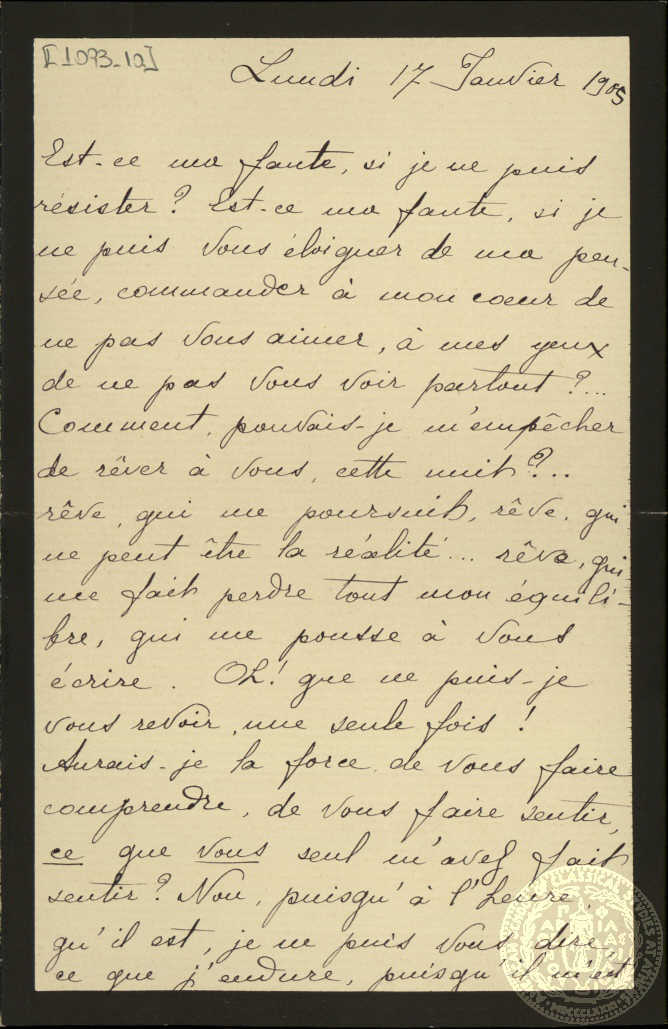 [1093-1a]
Lundi 17 Janvier 1905
Est-ce ma faute, si je ne puis
résister? Est-ce ma faute, si je
ne puis vous éloigner de ma pen-
sée, commander à mon coeur de
ne pas vous aimer, à mes yeux
de ne pas vous voir partout?...
Comment, pouvais-je m'empêcher
de rêver à vous, cette nuit?...
rêve, qui me poursuit, rêve, qui
ne peut être la réalité... rêve, qui
me fait perdre tout mon équili-
bre, qui me pousse à vous
écrire. Oh! que ne puis-je
vous revoir, une seule fois!
Aurais-je la force de vous faire
comprendre, de vous faire sentir,
ce que vous seul m'avez fait
sentir? Non, puisqu'à l'heure
qu'il est, je ne puis vous dire
ce que j'endure, puisqu'il m'est